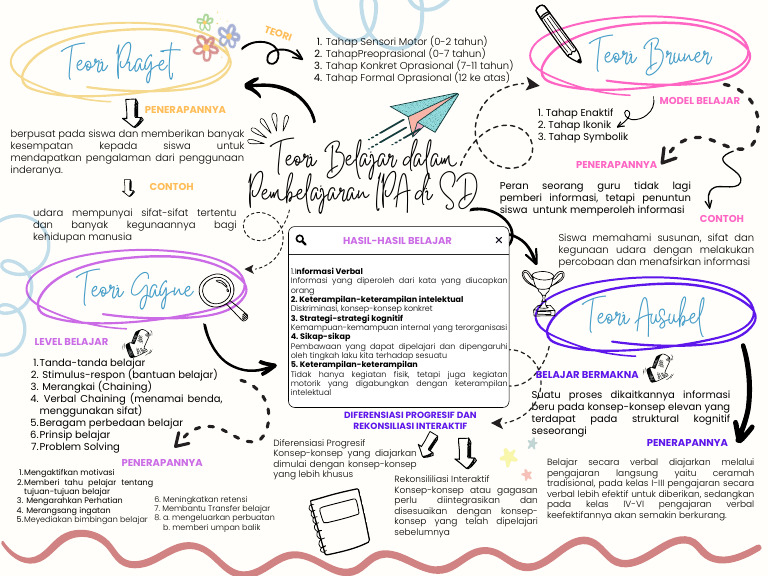 Teori Piaget
TEORI
1. Tahap Sensori Motor (0-2 tahun)
2. TahapPreoprasional (0-7 tahun)
3. Tahap Konkret Oprasional (7-11 tahun)
4. Tahap Formal Oprasional (12 ke atas)
PENERAPANNYA
berpusat pada siswa dan memberikan banyak
kesempatan kepada siswa untuk
mendapatkan pengalaman dari penggunaan
inderanya.
CONTOH
udara mempunyai sifat-sifat tertentu
dan banyak kegunaannya bagi
kehidupan manusia
Teori Belajar dalam
Pembelajaran IPA di SD
Teori Bruner
MODEL BELAJAR
1. Tahap Enaktif
2. Tahap Ikonik
3. Tahap Symbolik
PENERAPANNYA
Peran seorang guru tidak lagi
pemberi informasi, tetapi penuntun
siswa untunk memperoleh informasi
CONTOH
Siswa memahami susunan, sifat dan
kegunaan udara dengan melakukan
percobaan dan menafsirkan informasi
Teori Gagne
LEVEL BELAJAR
1.Tanda-tanda belajar
2. Stimulus-respon (bantuan belajar)
3. Merangkai (Chaining)
4. Verbal Chaining (menamai benda,
menggunakan sifat)
5.Beragam perbedaan belajar
6.Prinsip belajar
7.Problem Solving
PENERAPANNYA
1.Mengaktifkan motivasi
2.Memberi tahu pelajar tentang
tujuan-tujuan belajar
3. Mengarahkan Perhatian
4. Merangsang ingatan
5.Meyediakan bimbingan belajar
6. Meningkatkan retensi
7. Membantu Transfer belajar
8. a. mengeluarkan perbuatan
b. memberi umpan balik
HASIL-HASIL BELAJAR
1.Informasi Verbal
Informasi yang diperoleh dari kata yang diucapkan
orang
2. Keterampilan-keterampilan intelektual
Diskriminasi, konsep-konsep konkret
3. Strategi-strategi kognitif
Kemampuan-kemampuan internal yang terorganisasi
4. Sikap-sikap
Pembawaan yang dapat dipelajari dan dipengaruhi
oleh tingkah laku kita terhadap sesuatu
5. Keterampilan-keterampilan
Tidak hanya kegiatan fisik, tetapi juga kegiatan
motorik yang digabungkan dengan keterampilan
intelektual
Teori Ausubel
BELAJAR BERMAKNA
Suatu proses dikaitkannya informasi
beru pada konsep-konsep elevan yang
terdapat pada struktural kognitif
seseorangi
PENERAPANNYA
Belajar secara verbal diajarkan melalui
pengajaran langsung yaitu ceramah
tradisional, pada kelas I-III pengajaran secara
verbal lebih efektif untuk diberikan, sedangkan
pada kelas IV-VI pengajaran verbal
keefektifannya akan semakin berkurang.
DIFERENSIASI PROGRESIF DAN
REKONSILIASI INTERAKTIF
Diferensiasi Progresif
Konsep-konsep yang diajarkan
dimulai dengan konsep-konsep
yang lebih khusus
Rekonsililiasi Interaktif
Konsep-konsep atau gagasan
perlu diintegrasikan dan
disesuaikan dengan konsep-
konsep yang telah dipelajari
sebelumnya